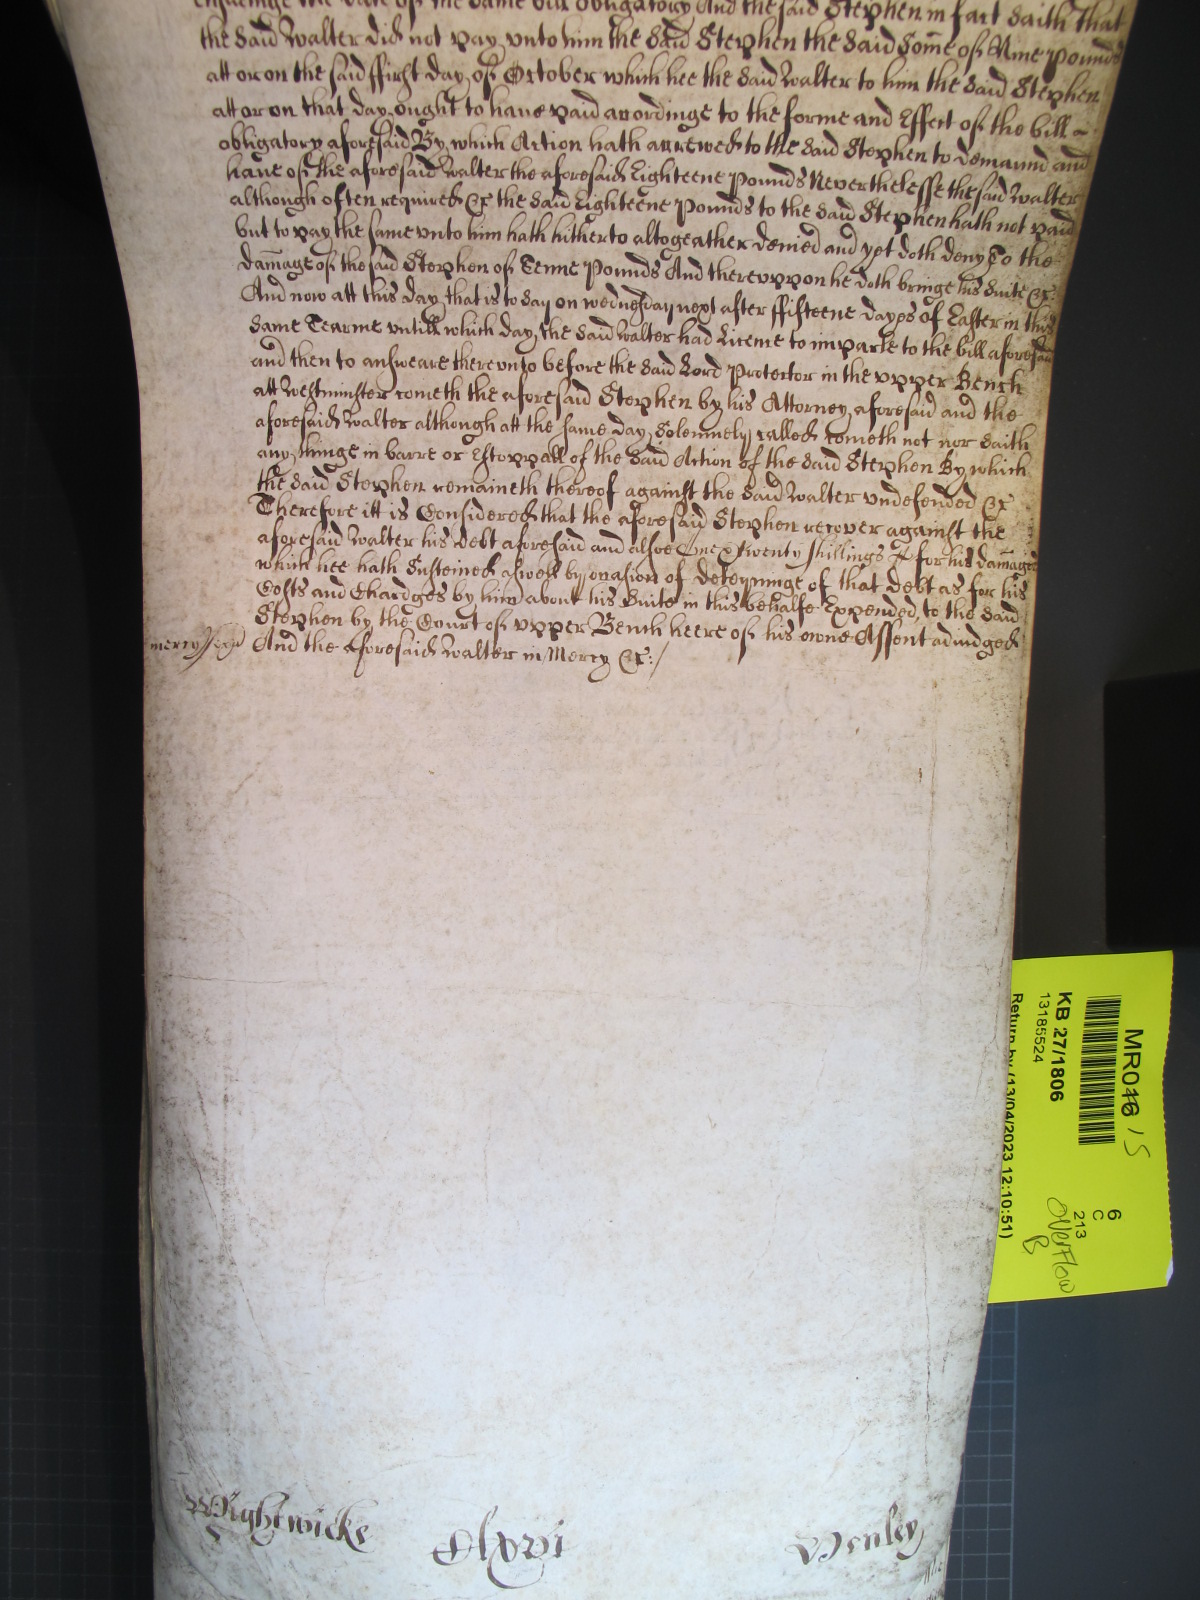 ensueinge the date of the same bill obligatory And the said Stephen in fact saith that
the said Walter did not pay unto him the said Stephen the said Some of Nine pounds
att or on the said ffirst day of October which hee the said Walter to him the said Stephen
att or on that day ought to haue paid accordinge to the forme and Effect of the bill
obligatory aforesaid By which Action hath accrewed to the said Stephen to demaund and
haue of the aforesaid Walter the aforesaid Eighteene pounds Neverthelesse the said Walter
although often required &c the said Eighteene pounds to the said Stephen hath not paid
but to pay the same vnto him hath hitherto altogeather denied and yet doth deny To the
damage of the said Stephen of Tenne pounds And therevppon he doth bringe his suite &c:
And now att this day that is to say on wednesday next after ffifteene dayes of Easter in this
same Tearme vntill which day the said Walter had Licence to imparle to the bill aforesaid
and then to answeare therevnto before the said Lord Protector in the vpper Bench
att Westminster cometh the aforesaid Stephen by his Attorney aforesaid and the
aforesaid Walter although att the same day Solemnely called cometh not nor saith
any thinge in barre or Estoppall of the said Action of the said Stephen By which
the said Stephen remaineth thereof against the said Walter vndefended &c
Therefore itt is Considered that the aforesaid Stephen recover against the
aforesaid Walter his debt aforesaid and alsoe One & twenty shillings for his damages
which hee hath Susteined aswell by occasion of deteyninge of that debt as for his
Costs and Chardges by him about his Suite in this behalfe Expended, to the said
Stephen by the Court of vpper Bench heere of his owne Assent adiudged
mercy And the aforesaid Walter in Mercy &c:/
Wightwicke Clxvi Henley
MR046 15
KB 27/1806
13185524
Return by (13/04/2023 12:10:51)
6
C
213
overflow
B